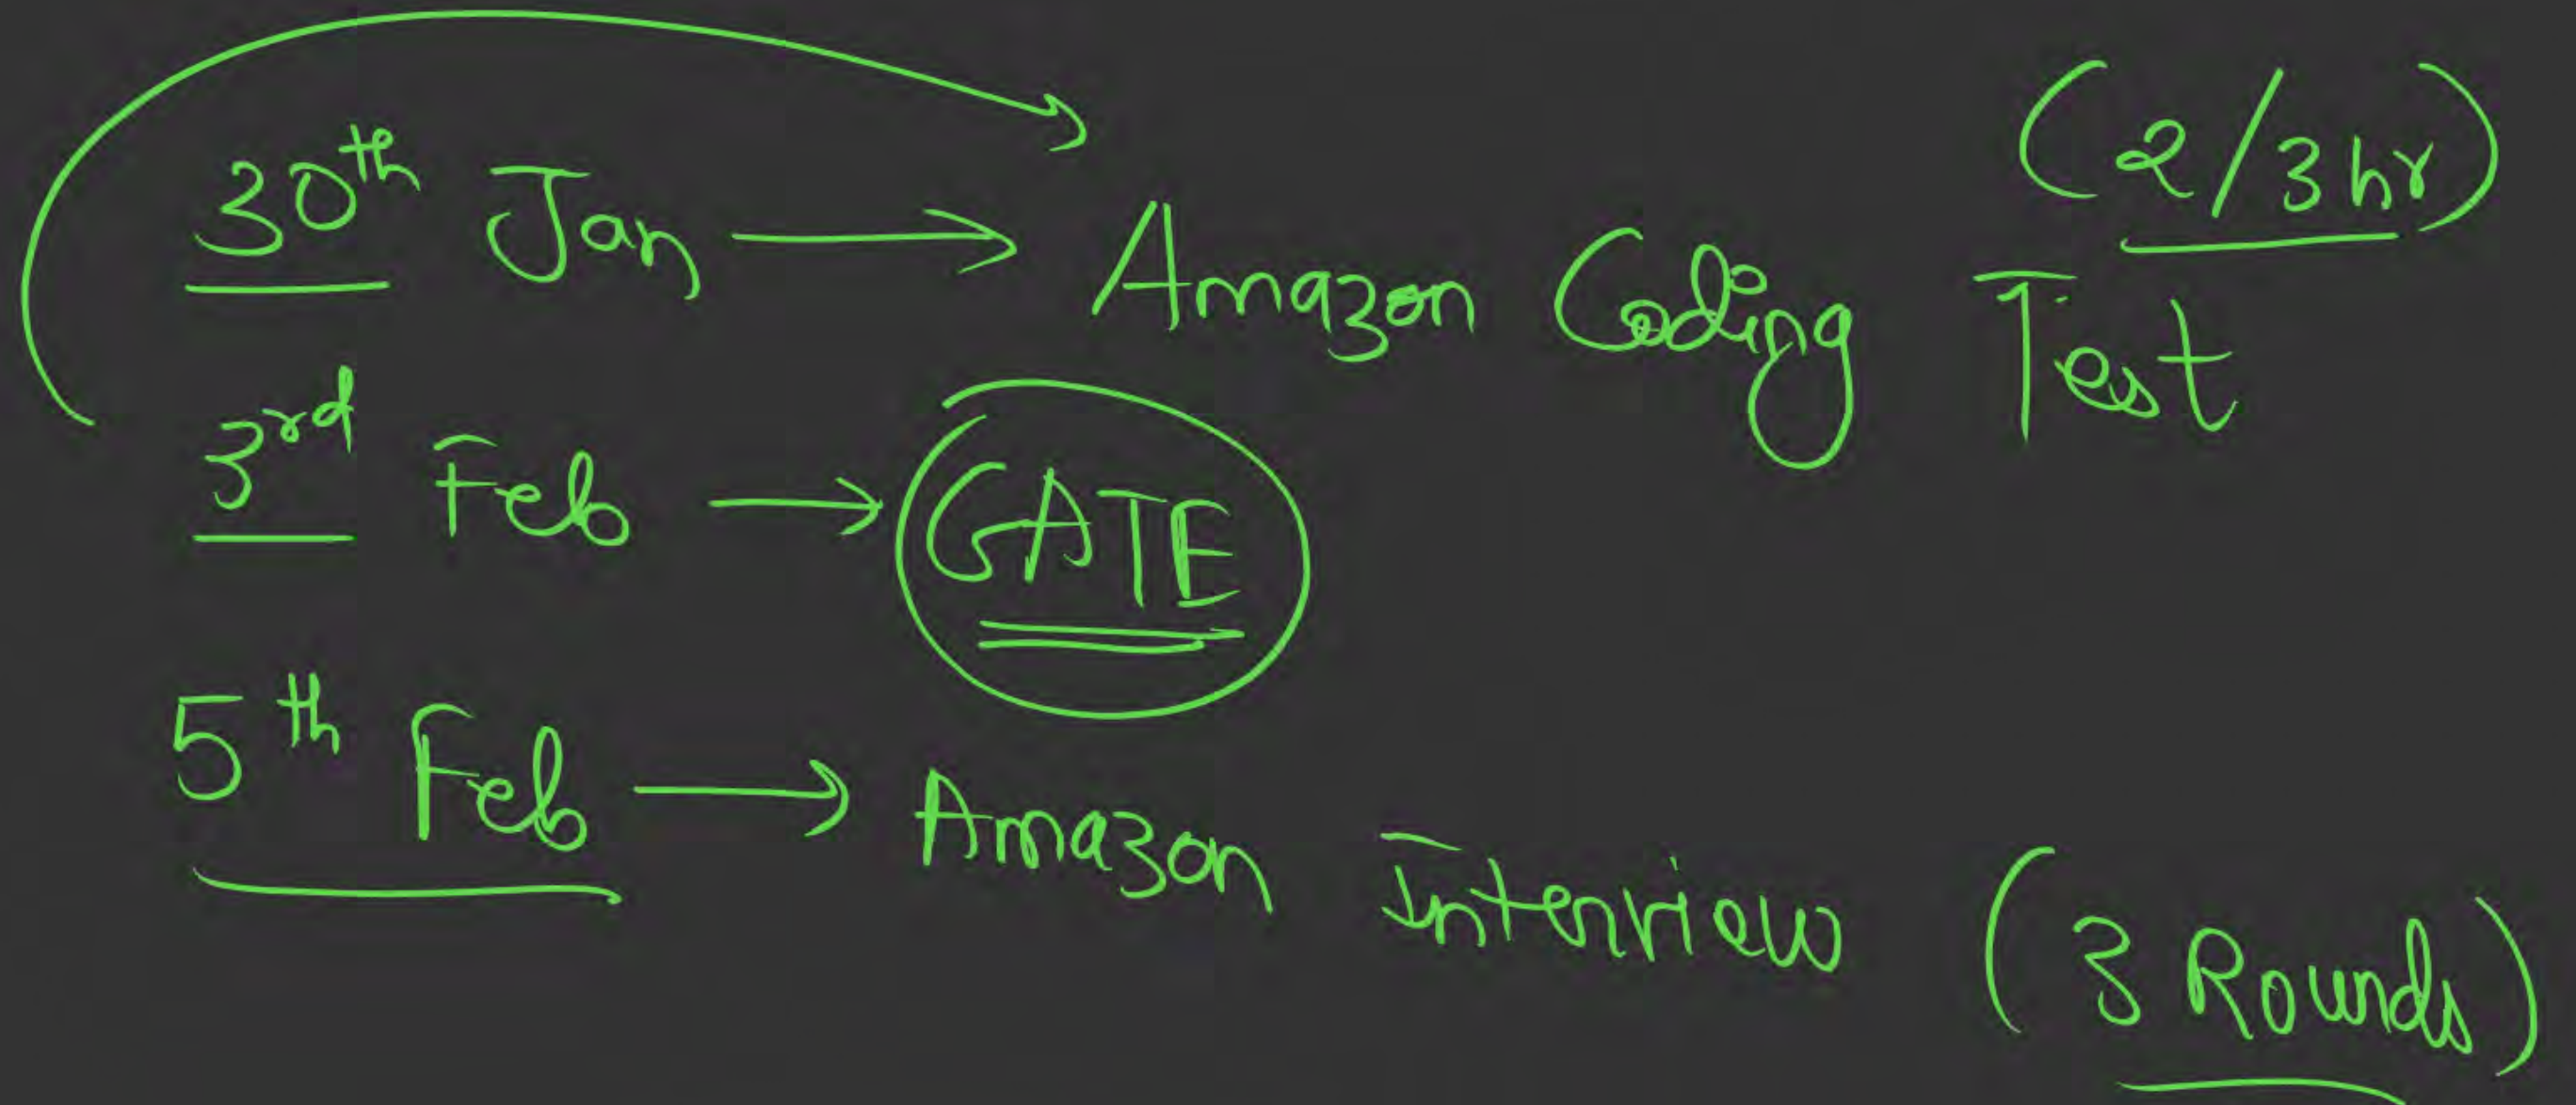 30th Jan → Amazon Coding Test (2/3 hr)
3rd Feb → GATE
5th Feb → Amazon Interview (3 Rounds)